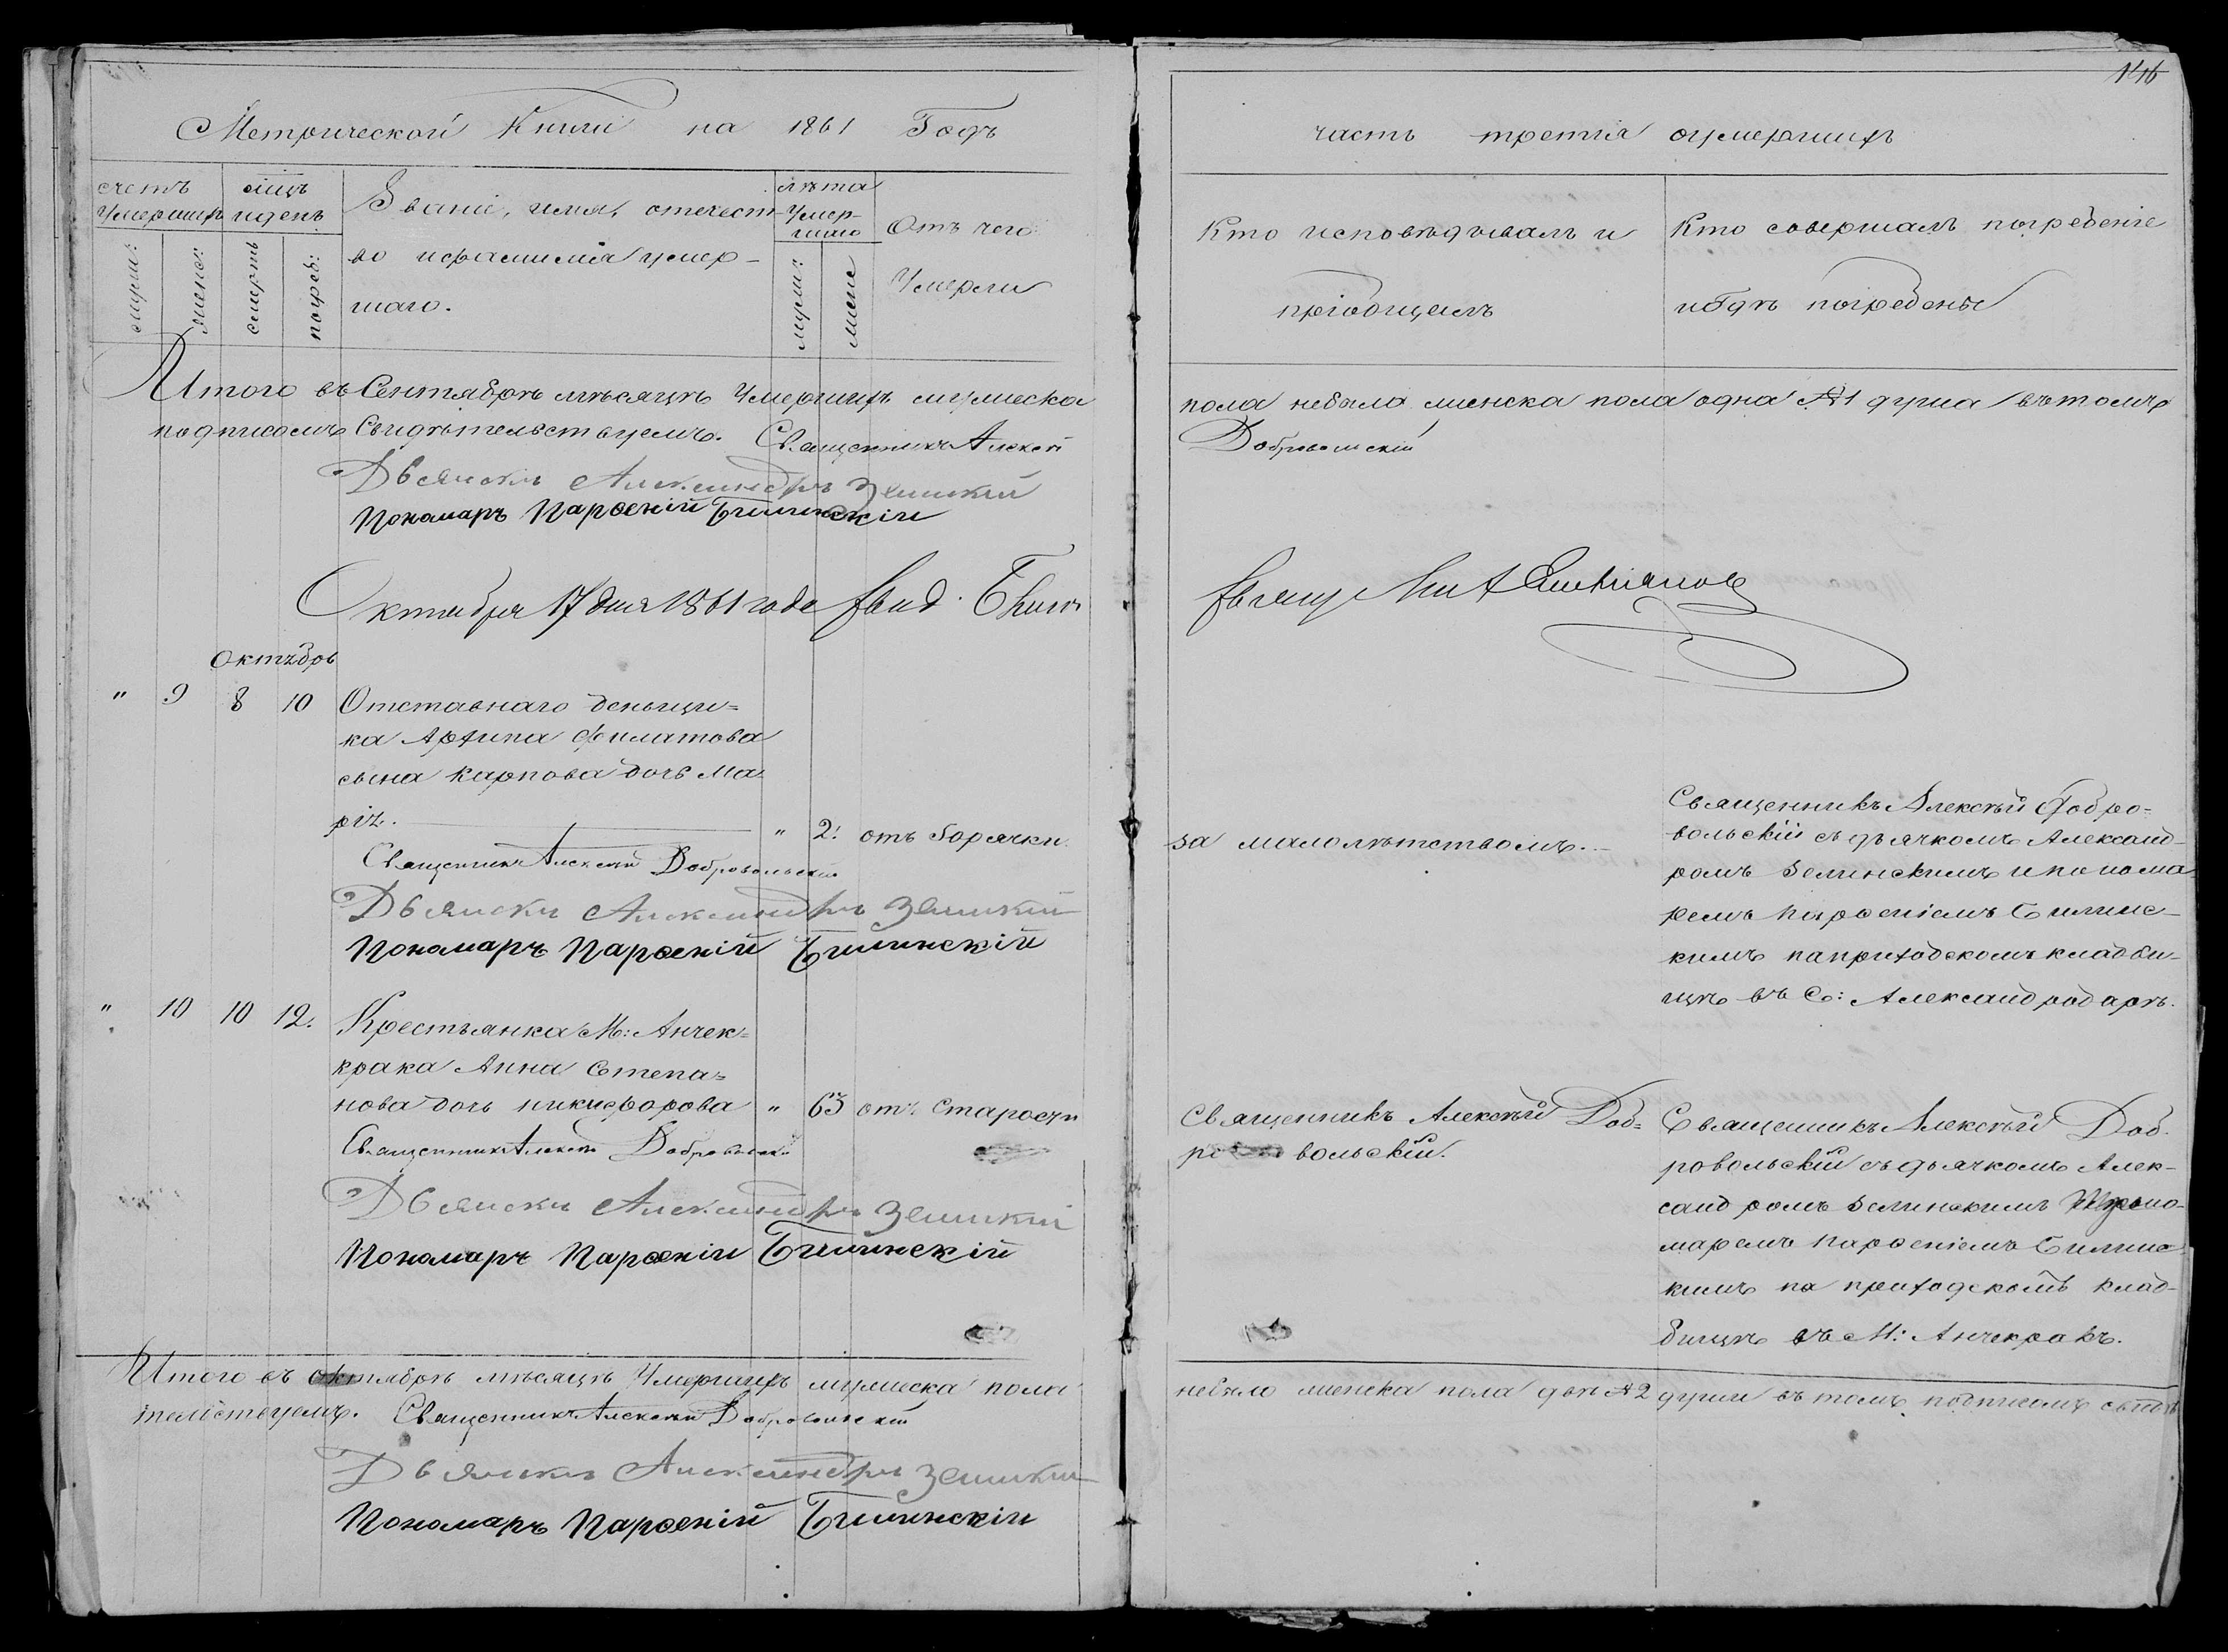 146
Метрической Книги на 1861 Годъ
часть третия оумершихъ
счетъ Умершихъ
мцъ иденъ
Званіе, имя, отечест-
во ифамилія умер-
шаго.
лѣта Умер-
шаго
Отъ чего
Умерли
мужи:
женс:
смерть
погреб:
мужи:
женс
Кто исповѣдывалъ и
пріобщалъ
Кто совершалъ погребеніе
игдѣ погребены
Итого въ Сентябрѣ мѣсяцѣ Умершихъ мужеска
пола небыло женска пола одна №1 душа вътомъ
подписомъ Свидѣтельствуемъ. Священникъ Алексѣй
Добровольскій
Дьячокъ Александръ Зелинскій
Пономарь Парѳеній Билинскій
Октября 17 дня 1861 года
Октябрь
" 9 8 10 Отставнаго деньщи=
ка Архипа Филатова
сына Карпова дочь Ма
рія. " 2. отъ Горячки
за малолѣтствомъ.
Священникъ Алексѣй Добро=
вольскій съ дьячкомъ Александ
ромъ Зелинскимъ и понома
ремъ Парѳеніемъ Билинс-
кимъ наприходскомъ кладби-
щѣ въ С: Александродарѣ.
Священникъ Алексѣй Добровольскій
Дьячокъ Александръ Зелинскій
Пономарь Парѳеній Билинскій
" 10 10 12. Крестьянка М: Анчек=
крака Анна Степа=
нова дочь никифорова " 63 отъ Старости
Священникъ Алексѣй Доб=
ро вольскій.
Священникъ Алексѣй Доб
ровольскій съ дьячкомъ Алек-
сандромъ Зелинскимъ
маремъ Парѳеніемъ Билинс
кимъ на приходскомъ клад-
бищѣ въ М: Анчекракъ.
Священникъ Алексѣй Добровольскій
Дьячокъ Александръ Зелинскій
Пономарь Парѳеній Билинскій
Итого въ октябрѣ мѣсяцѣ Умершихъ мужеска пола
небыло женска пола двѣ №2 души въ томъ подписомъ свидѣ
тельствуемъ. Священникъ Алексѣй Добровольскій
Дьячокъ Александръ Зелинскій
Пономарь Парѳеній Билинскій